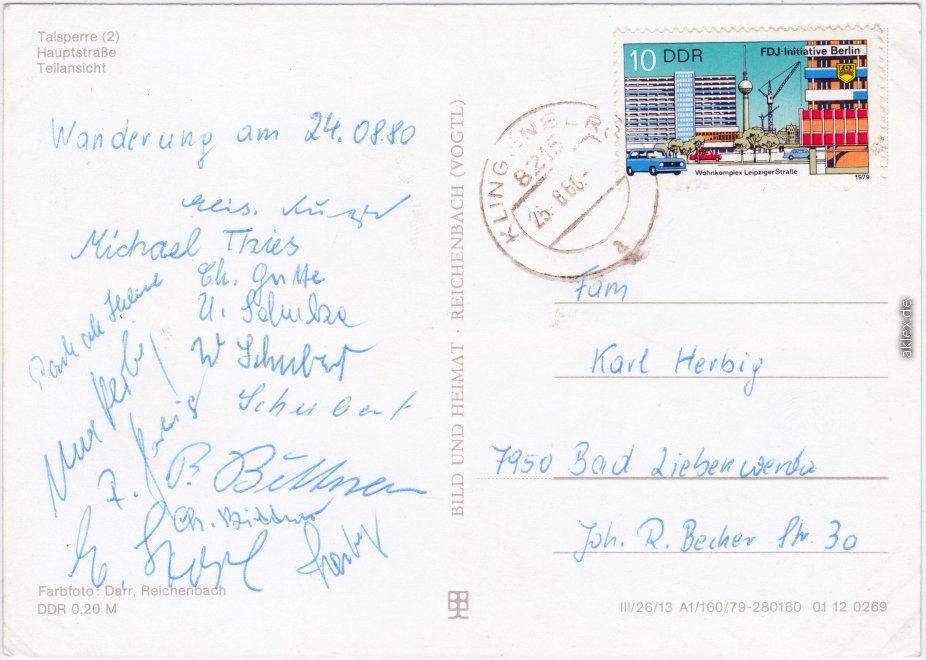 Talsperre (2)
Hauptstraße
Teilansicht
Wanderung am 24.08.80
Michael Thies
Ch. Gutte
U. Schulze
W Schubert
Schubert
B. Büttner
Ch. Büttner
Farbfoto: Darr, Reichenbach
DDR 0,20 M
BILD UND HEIMAT · REICHENBACH (VOGTL)
10 DDR
FDJ-Initiative Berlin
FDJ
Wohnkomplex Leipziger Straße
1979
KLINGENBERG
8215
25. 8 80.-
a
Fam
Karl Herbig
7950 Bad Liebenwerda
Joh. R. Becher Str. 30
III/26/13 A1/160/79-280160 01 12 0269
aklex.de